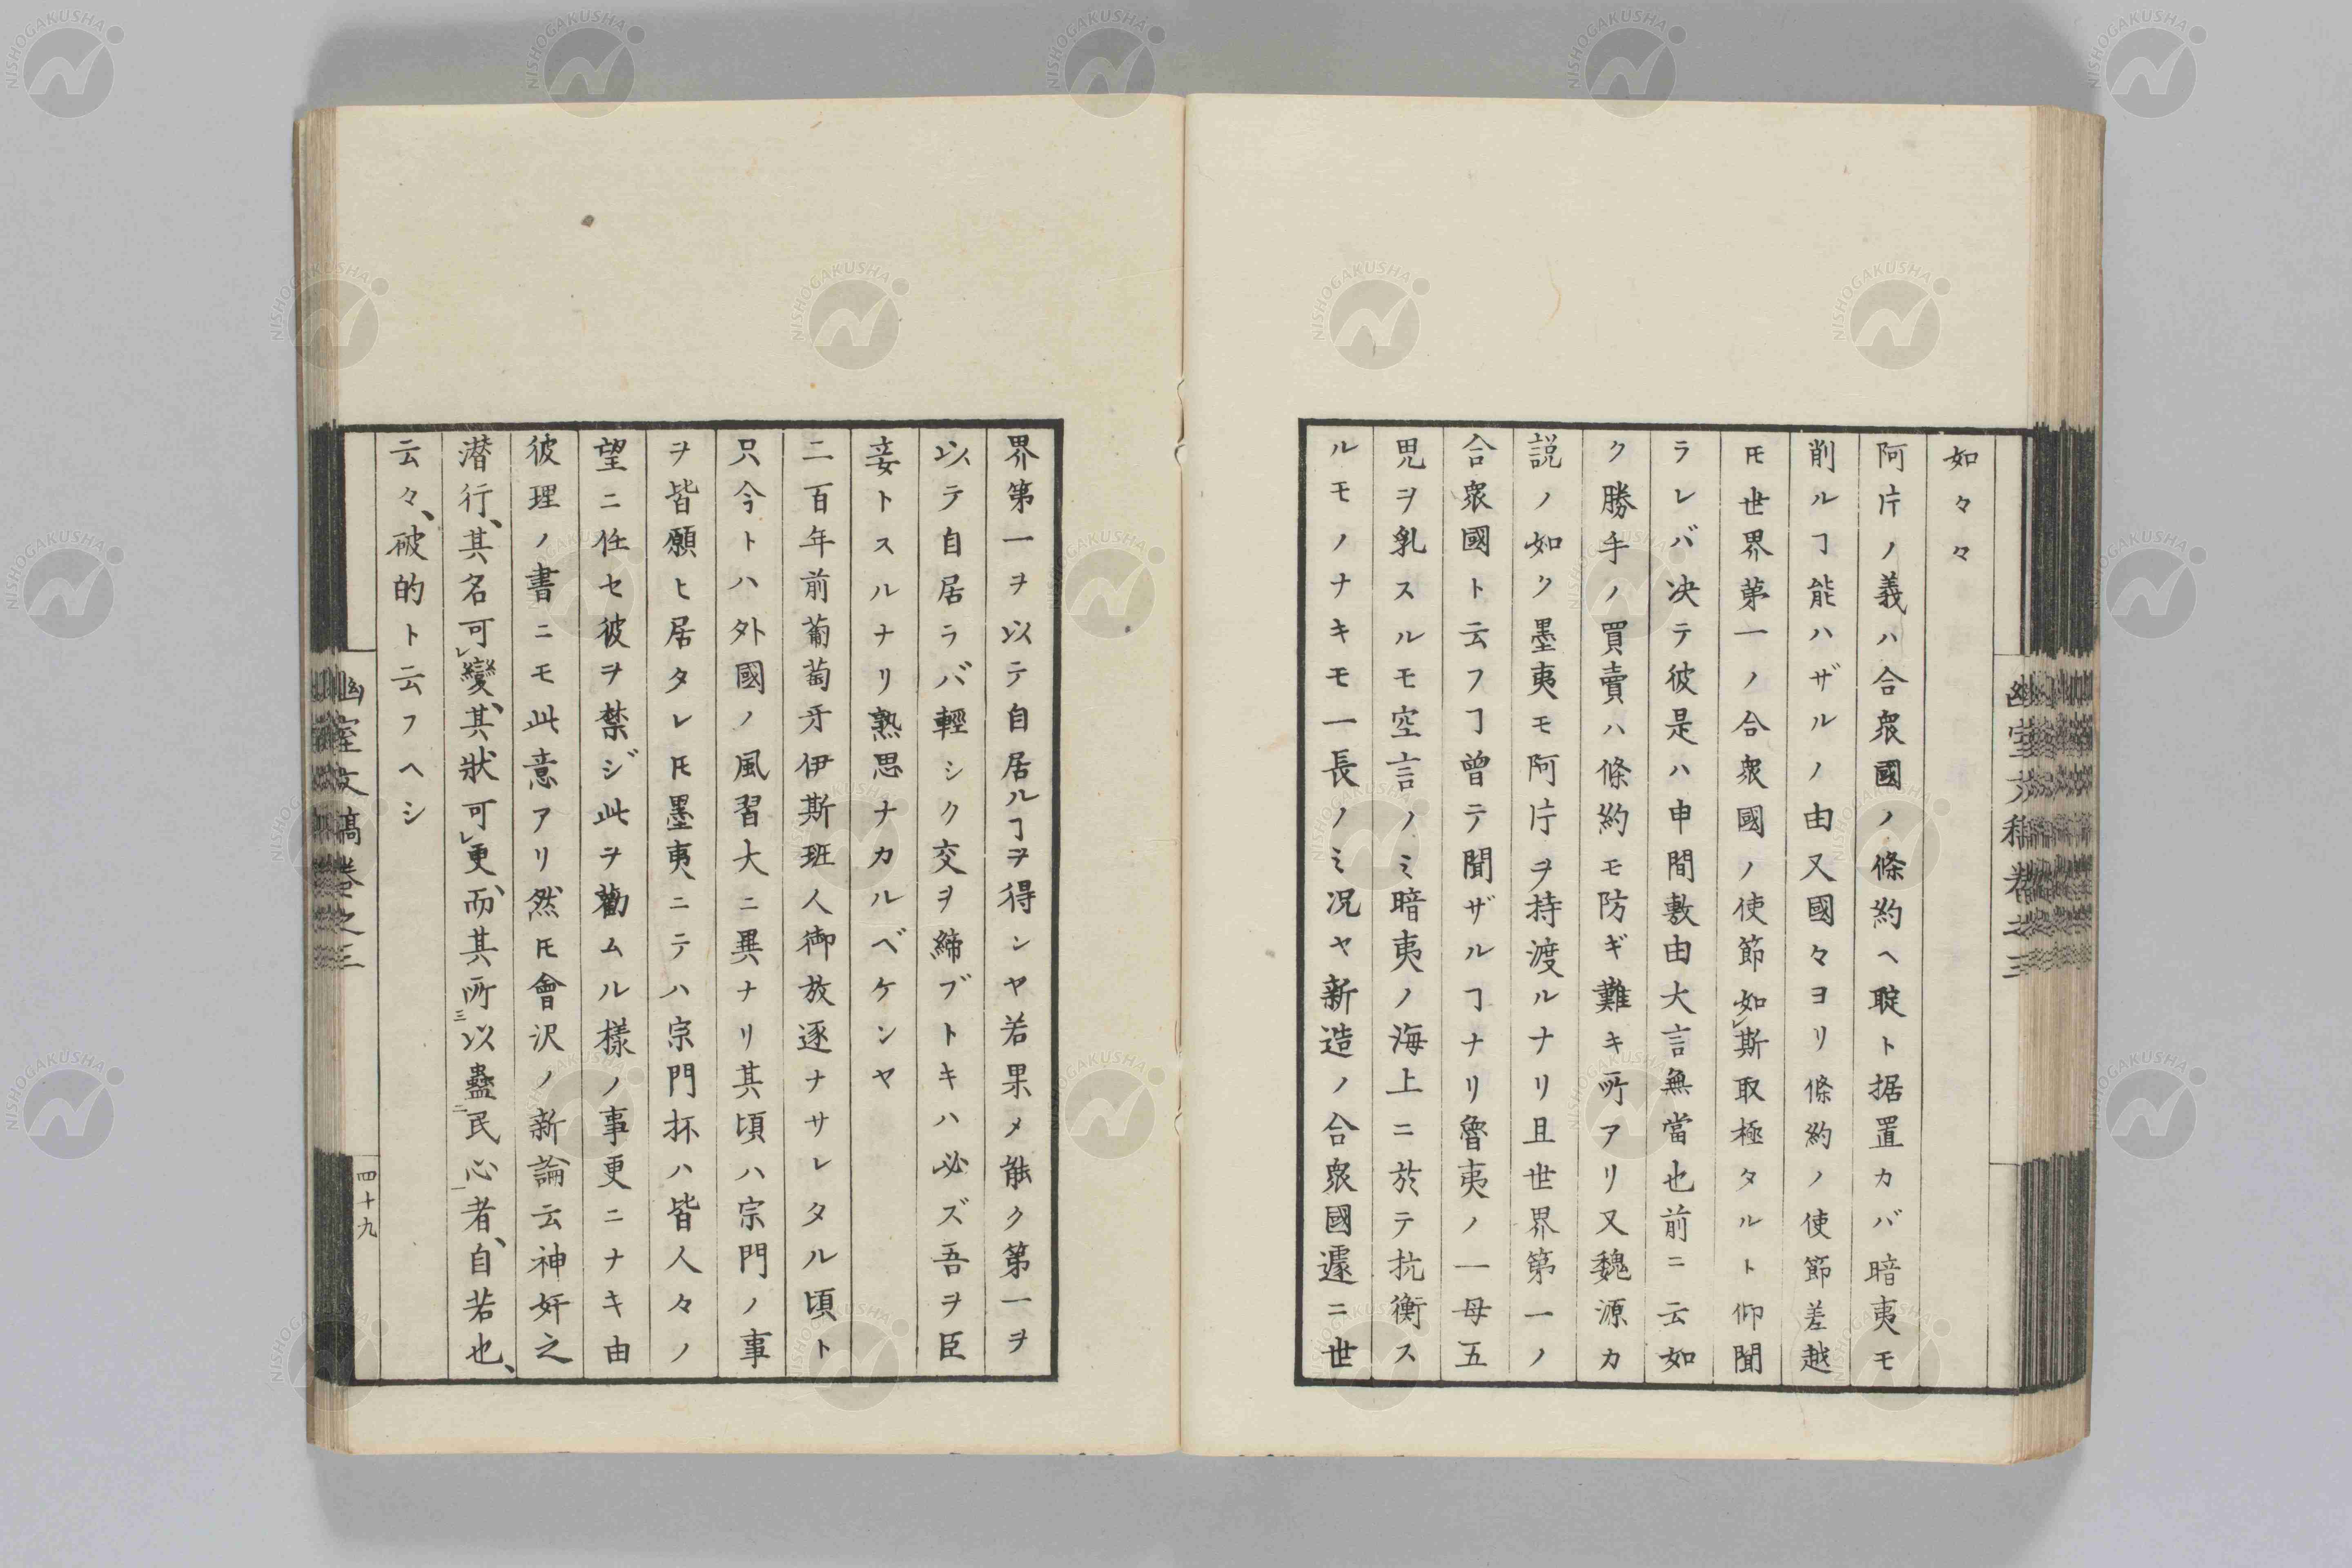 如々々
阿片ノ義ハ合衆國ノ條約ヘ聢ト据置カバ暗夷モ
削ルヿ能ハザルノ由又國々ヨリ條約ノ使節差越
𪜈世界第一ノ合衆國ノ使節如レ斯取極タルト仰聞
ラレバ决テ彼是ハ申間敷由大言無當也前ニ云如
ク勝手ノ買賣ハ條約モ防ギ難キ所アリ又魏源カ
説ノ如ク墨夷モ阿片ヲ持渡ルナリ且世界第一ノ
合衆國ト云フヿ曾テ聞ザルヿナリ魯夷ノ一母五
児ヲ乳スルモ空言ノミ暗夷ノ海上ニ於テ抗衡ス
ルモノナキモ一長ノミ况ヤ新造ノ合衆國遽ニ世
幽室文稿卷之三
界第一ヲ以テ自居ルヿヲ得ンヤ若果メ能ク第一ヲ
以テ自居ラバ輕シク交ヲ締ブトキハ必ズ吾ヲ臣
妾トスルナリ熟思ナカルベケンヤ
二百年前葡萄牙伊斯班人御放逐ナサレタル頃ト
只今トハ外國ノ風習大ニ異ナリ其頃ハ宗門ノ事
ヲ皆願ヒ居タレ𪜈墨夷ニテハ宗門抔ハ皆人々ノ
望ニ任セ彼ヲ禁ジ此ヲ勸ムル樣ノ事更ニナキ由
彼理ノ書ニモ此意アリ然𪜈會沢ノ新論云神奸之
潜行、其名可レ變、其狀可レ更、而其所三以蠱二民心一者、自若也、
云々、破的ト云フヘシ
幽室文稿卷之三
四十九
NISHOGAKUSHA